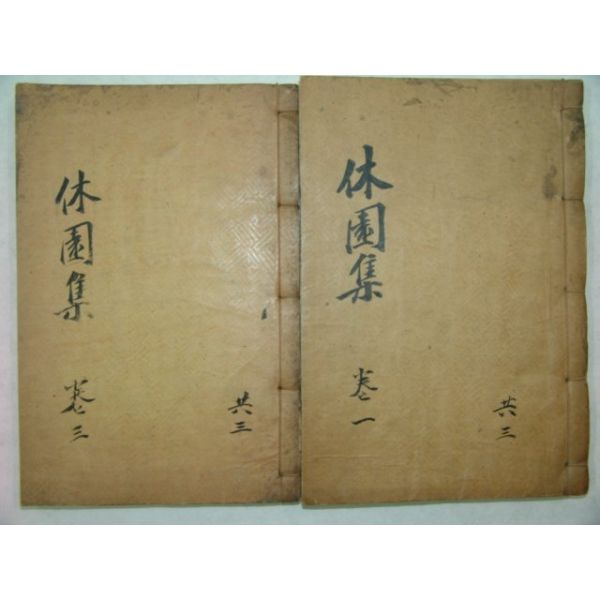 休園集
卷之三
共三
休園集
卷之一
共三